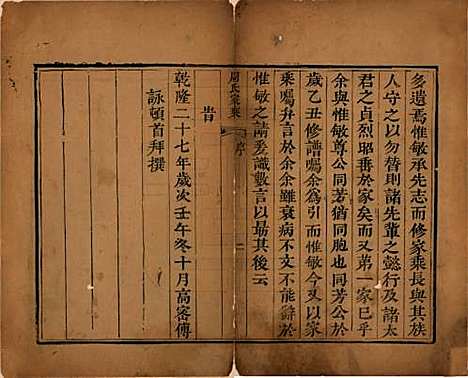 多遺焉惟敏承先志而修家乘長與其族
人守之以勿替則諸先輩之懿行及諸太
君之貞烈昭垂於家矣而又弟一家已乎
余與惟敏尊公同芳猶同胞也同芳公於
歲乙丑修譜囑余為引而惟敏今又以家
乘囑弁言於余余雖衰病不文不能辭於
惟敏之請爰識數言以勗其後云
周氏家乘
序
二
旹
乾隆二十七年歲次壬午冬十月高密傅
詠頓首拜撰